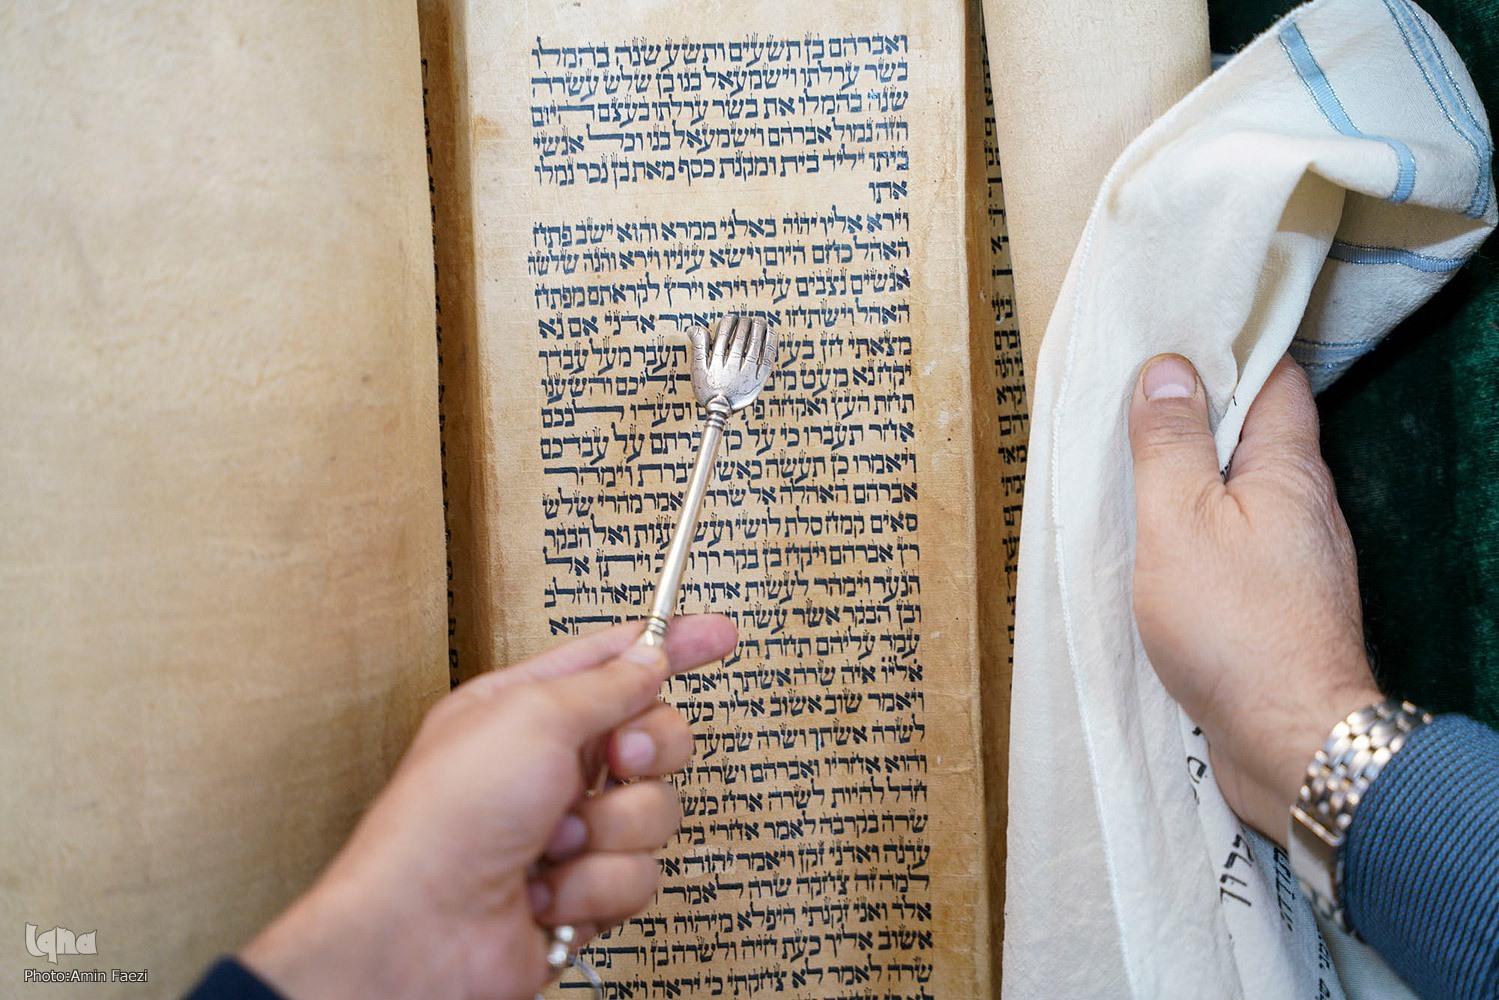 ואברהם בן תשעים ותשע שנה בהמלו
בשר ערלתו וישמעאל בנו בן שלש עשרה
שנה בהמלו את בשר ערלתו בעצם היום
הזה נמול אברהם וישמעאל בנו וכל אנשי
ביתו יליד בית ומקנת כסף מאת בן נכר נמלו
אתו
וירא אליו יהוה באלני ממרא והוא ישב פתח
האהל כחם היום וישא עיניו וירא והנה שלשה
אנשים נצבים עליו וירא וירץ לקראתם מפתח
האהל וישתחו אדני אם נא
מצאתי חן תעבר מעל עבדך
יקח נא מעט והשענו
תחת העץ ואקחה וסעדו לבכם
אחר תעברו כי על כן עברתם על עבדכם
ויאמרו כן תעשה כאשר דברת וימהר
אברהם האהלה אל שרה ויאמר מהרי שלש
סאים קמח סלת לושי ועשי עגות ואל הבקר
רץ אברהם ויקח בן בקר רך ויתן אל
הנער וימהר לעשות אתו ויקח חמאה וחלב
ובן הבקר אשר עשה והוא
עמד עליהם תחת
אליו איה שרה אשתך ויאמר
ויאמר שוב אשוב אליך
לשרה אשתך ושרה שמעת
והוא אחריו ואברהם ושרה
חדל להיות לשרה ארח כנשים
שרה בקרבה לאמר אחרי
עדנה ואדני זקן ויאמר יהוה
למה זה צחקה שרה לאמר
אלד ואני זקנתי היפלא מיהוה דבר
אשוב אליך כעת חיה ולשרה בן ותכחש
שרה לאמר לא צחקתי כי יראה ויאמר
iqna
Photo:Amin Faezi